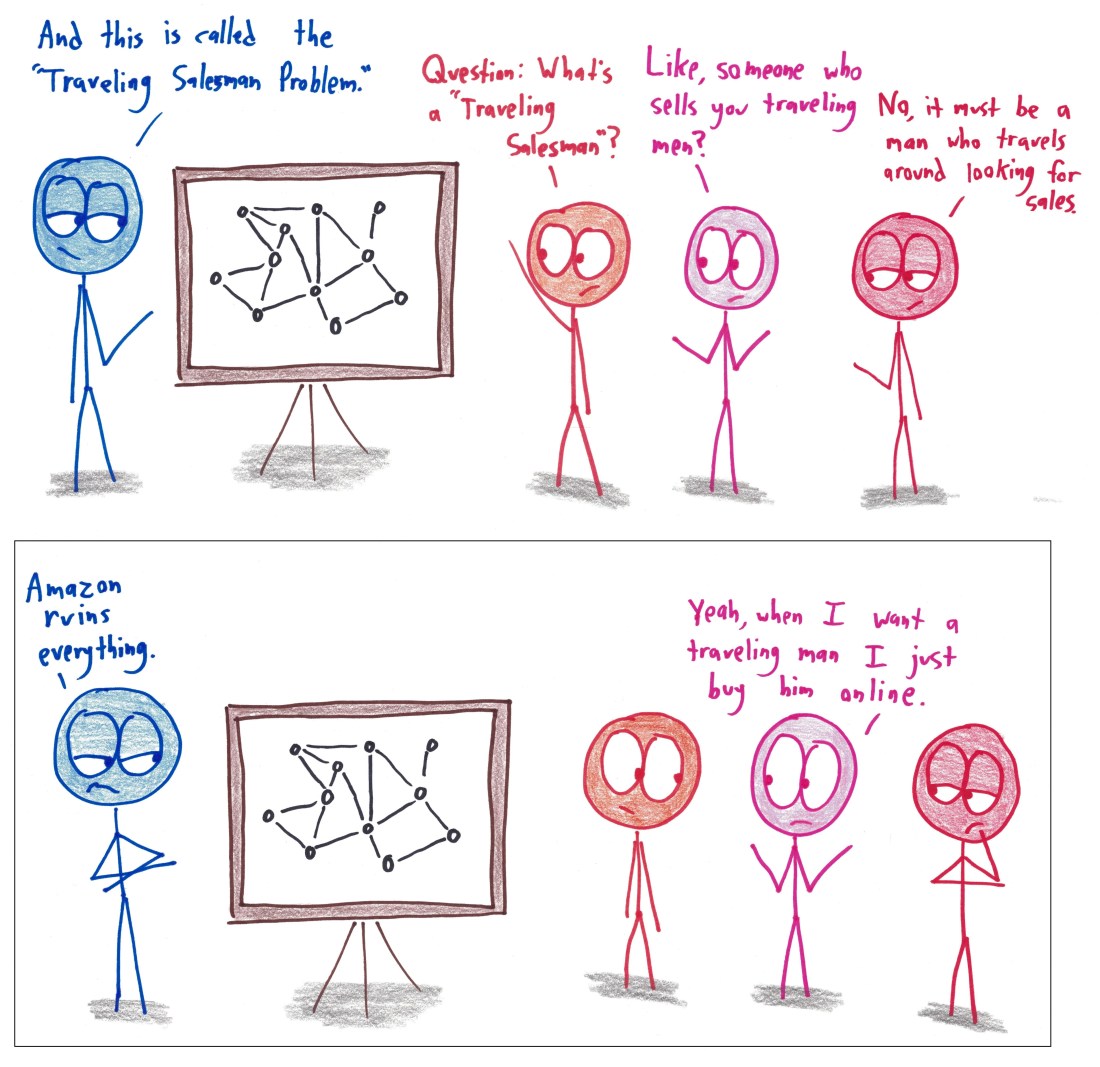 And this is called the
"Traveling Salesman Problem."
Question: What's
a "Traveling
Salesman"?
Like, someone who
sells you traveling
men?
No, it must be a
man who travels
around looking for
sales.
Amazon
ruins
everything.
Yeah, when I want a
traveling man I just
buy him online.